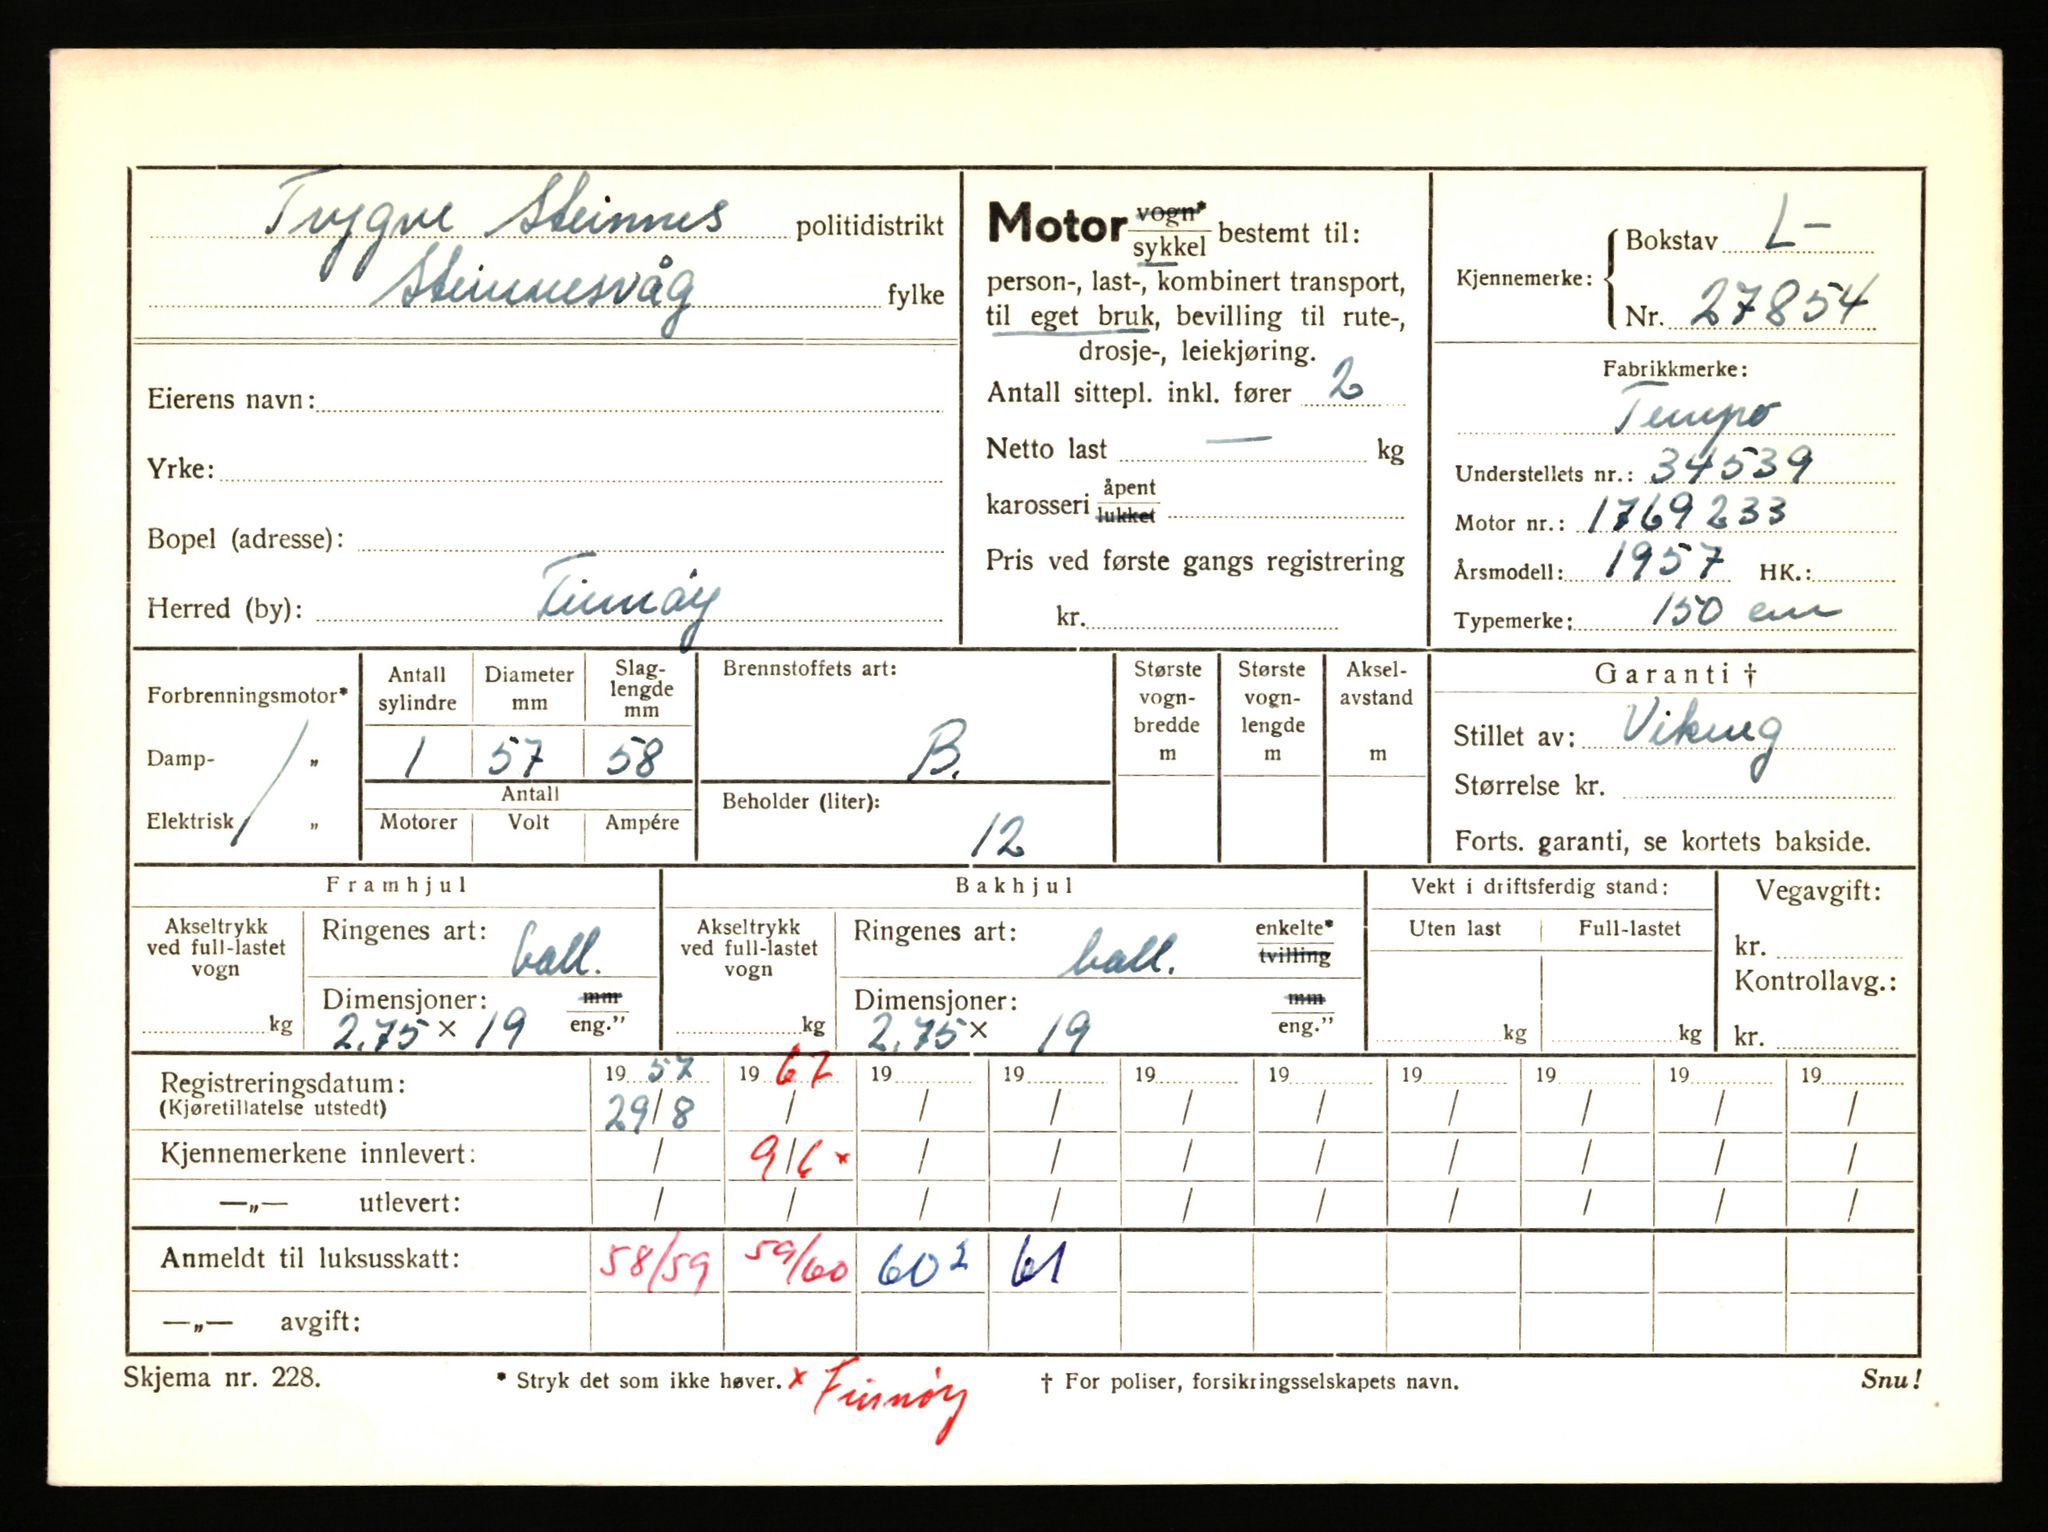 Trygve Steinnes politidistrikt
Steinnesvåg fylke
Eierens navn:
Yrke:
Bopel (adresse):
Herred (by): Finnøy
Motor vogn* / sykkel bestemt til:
person-, last-, kombinert transport,
til eget bruk, bevilling til rute-,
drosje-, leiekjøring.
Antall sittepl. inkl. fører 2
Netto last — kg
karosseri åpent / lukket
Pris ved første gangs registrering
kr.
Kjennemerke: Bokstav L-
Nr. 27854
Fabrikkmerke:
Tempo
Understellets nr.: 34539
Motor nr.: 1769233
Årsmodell: 1957 HK.:
Typemerke: 150 cm
Forbrenningsmotor*
Damp- „
Elektrisk „
Antall sylindre Diameter mm Slaglengde mm
1 57 58
Antall
Motorer Volt Ampére
Brennstoffets art:
B.
Beholder (liter):
12
Største vogn-bredde m
Største vogn-lengde m
Aksel-avstand m
Garanti †
Stillet av: Viking
Størrelse kr.
Forts. garanti, se kortets bakside.
Framhjul
Akseltrykk ved full-lastet vogn
kg
Ringenes art: ball.
Dimensjoner: mm
2,75 × 19 eng.”
Bakhjul
Akseltrykk ved full-lastet vogn
kg
Ringenes art: ball. enkelte* tvilling
Dimensjoner: mm
2,75 × 19 eng.”
Vekt i driftsferdig stand:
Uten last Full-lastet
kg kg
Vegavgift:
kr.
Kontrollavg.:
kr.
Registreringsdatum: 19 57 19 67 19 19 19 19 19 19 19 19
(Kjøretillatelse utstedt) 29/8 / / / / / / / / /
Kjennemerkene innlevert: / 9/6 × / / / / / / / /
—„— utlevert: / / / / / / / / / /
Anmeldt til luksusskatt: 58/59 59/60 60² 61
—„— avgift:
Skjema nr. 228. * Stryk det som ikke høver. × Finnøy † For poliser, forsikringsselskapets navn. Snu!